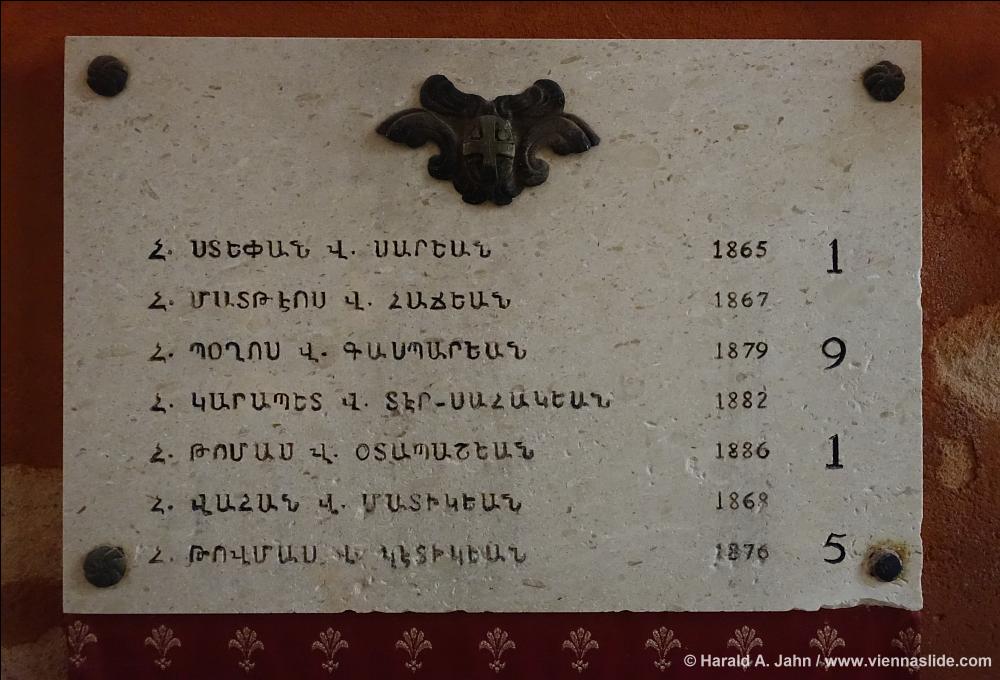 Հ. ՍՏԵՓԱՆ Վ. ՍԱՐԵԱՆ 1865 1
Հ. ՄԱՏԹԷՈՍ Վ. ՀԱՃԵԱՆ 1867
Հ. ՊՕՂՈՍ Վ. ԳԱՍՊԱՐԵԱՆ 1879 9
Հ. ԿԱՐԱՊԵՏ Վ. ՏԷՐ-ՍԱՀԱԿԵԱՆ 1882
Հ. ԹՈՄԱՍ Վ. ՕՏԱՊԱՇԵԱՆ 1886 1
Հ. ՎԱՀԱՆ Վ. ՄԱՏԻԿԵԱՆ 1868
Հ. ԹՈՎՄԱՍ Վ. ԿԷՏԻԿԵԱՆ 1876 5
© Harald A. Jahn / www.viennaslide.com